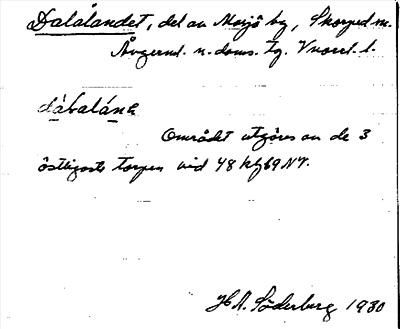 Dalålandet, del av Mosjö by, Skorped sn.
Ångerml. n. doms. tg. Vnorrl. l.
Området utgöres av de 3
östligaste torpen vid 48 kf 69 NV.
H A. Söderberg 1930